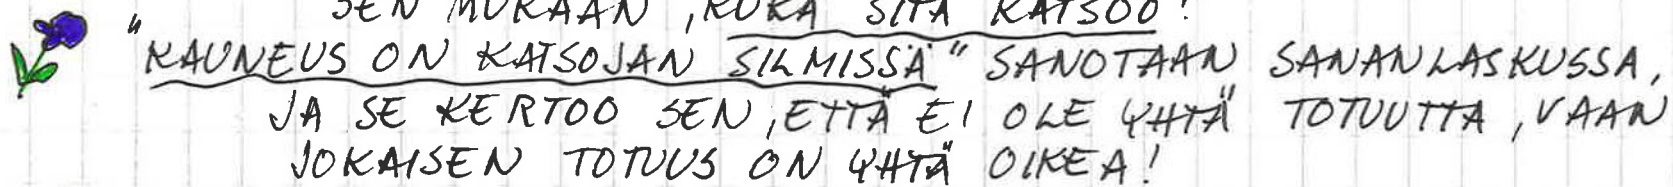 SEN MUKAAN, KUKA SITÄ KATSOO!
"KAUNEUS ON KATSOJAN SILMISSÄ" SANOTAAN SANANLASKUSSA,
JA SE KERTOO SEN, ETTÄ EI OLE YHTÄ TOTUUTTA, VAAN
JOKAISEN TOTUUS ON YHTÄ OIKEA!